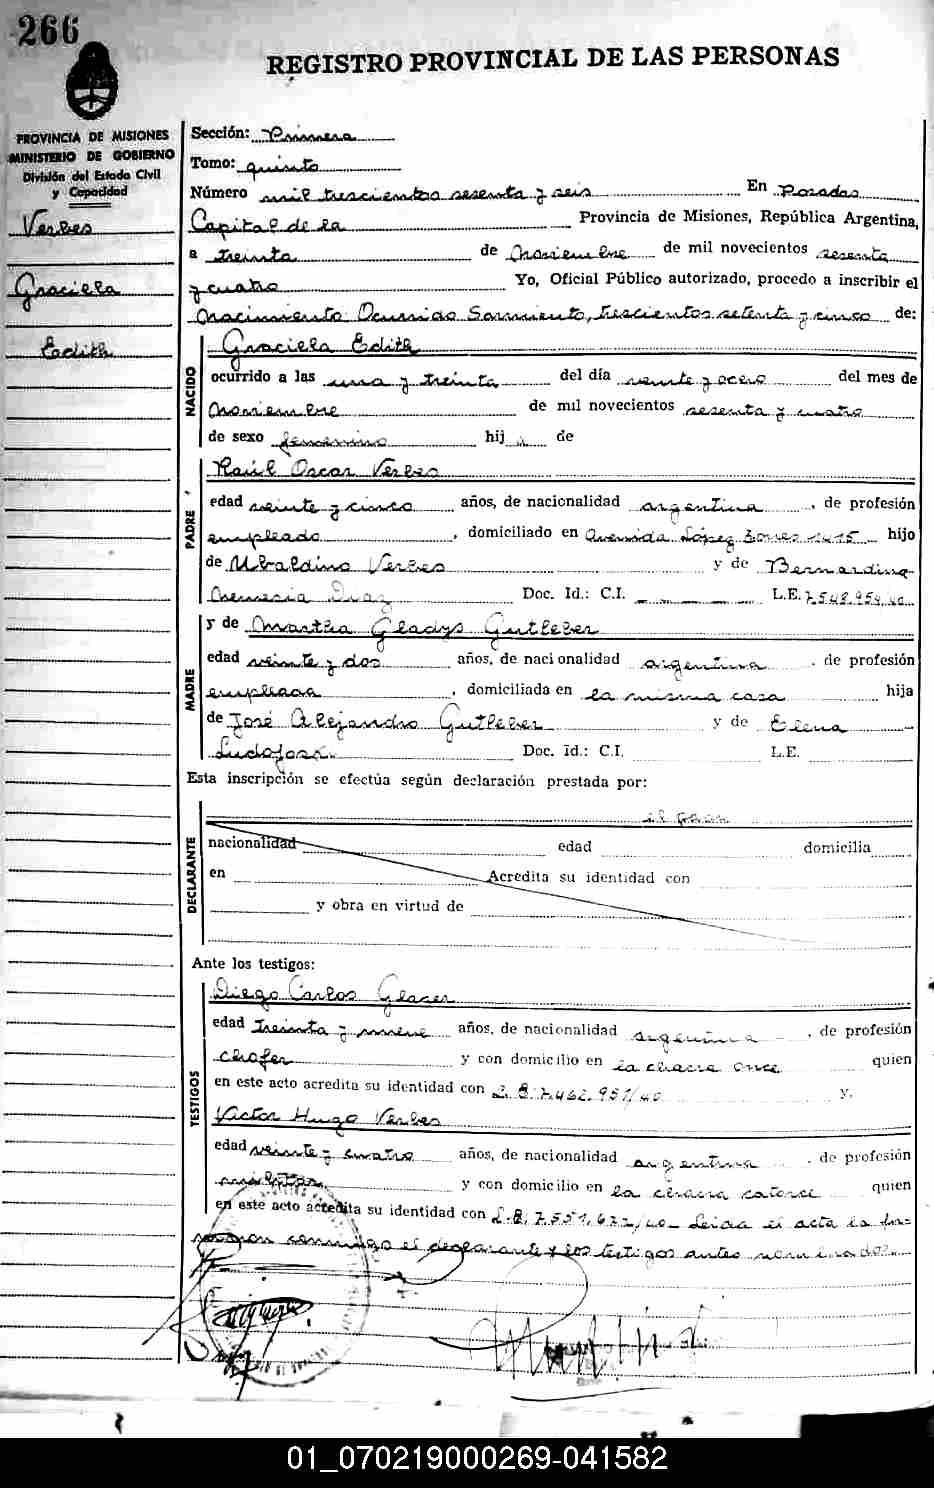 266
REGISTRO PROVINCIAL DE LAS PERSONAS
PROVINCIA DE MISIONES
MINISTERIO DE GOBIERNO
División del Estado Civil
y Capacidad
Verbes
Graciela
Edith
Sección: Primera
Tomo: quinto
Número mil trescientos sesenta y seis En Posadas
Capital de la Provincia de Misiones, República Argentina,
a treinta de Noviembre de mil novecientos sesenta
y cuatro Yo, Oficial Público autorizado, procedo a inscribir el
Nacimiento Ocurrido Sarmiento, trescientos setenta y cinco de:
NACIDO
Graciela Edith
ocurrido a las una y treinta del día veinte y ocho del mes de
Noviembre de mil novecientos sesenta y cuatro
de sexo femenino hija de
PADRE
Raúl Oscar Verbes
edad veinte y cinco años, de nacionalidad argentina, de profesión
empleado, domiciliado en Avenida López Torres 1415 hijo
de Ubaldino Verbes y de Bernardina
Nemesia Diaz Doc. Id.: C.I. L.E. 7.548.954.40
MADRE
y de Martha Gladys Gutleber
edad veinte y dos años, de nacionalidad argentina, de profesión
empleada, domiciliada en la misma casa hija
de José Alejandro Gutleber y de Elena
Doc. Id.: C.I. L.E.
Esta inscripción se efectúa según declaración prestada por:
DECLARANTE
el
nacionalidad edad domicilia
en Acredita su identidad con
y obra en virtud de
Ante los testigos:
TESTIGOS
Diego Carlos Glaser
edad treinta y nueve años, de nacionalidad argentina, de profesión
chofer y con domicilio en la chacra once quien
en este acto acredita su identidad con L.E. 7.462.951/40 y.
Victor Hugo Verbes
edad veinte y cuatro años, de nacionalidad argentina, de profesión
militar y con domicilio en la chacra catorce quien
en este acto acredita su identidad con L.E. 7.551.672/40 Leida el acta la
conmigo el declarante y los testigos antes nombrados.
01_070219000269-041582